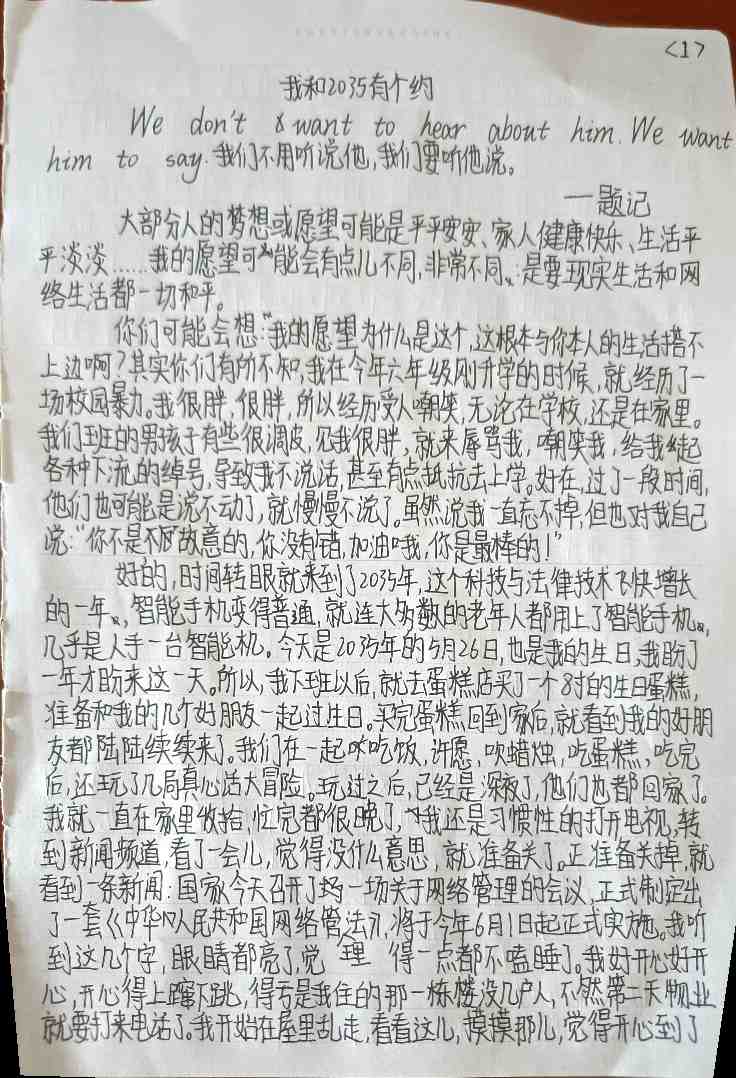 <1>
我和2035有个约
We don't want to hear about him. We want
him to say. 我们不用听说他，我们要听他说。
——题记
大部分人的梦想或愿望可能是平平安安、家人健康快乐、生活平
平淡淡……我的愿望可能会有点儿不同，非常不同，是要现实生活和网
络生活都一切和平。
你们可能会想："我的愿望为什么是这个，这根本与你本人的生活搭不
上边啊？其实你们有所不知，我在今年六年级刚升学的时候，就经历了一
场校园暴力。我很胖，很胖，所以经历受人嘲笑，无论在学校，还是在家里。
我们班的男孩子有些很调皮，见我很胖，就来辱骂我，嘲笑我，给我起
各种下流的绰号，导致我不说话，甚至有点抵抗去上学。好在，过了一段时间，
他们也可能是说不动了，就慢慢不说了。虽然说我一直忘不掉，但也对我自己
说："你不是不故意的，你没有错，加油哦，你是最棒的！"
好的，时间转眼就来到了2035年，这个科技与法律技术飞快增长
的一年，智能手机变得普通，就连大多数的老年人都用上了智能手机，
几乎是人手一台智能机。今天是2035年的5月26日，也是我的生日，我盼了
一年才盼来这一天。所以，我下班以后，就去蛋糕店买了一个8寸的生日蛋糕，
准备和我的几个好朋友一起过生日。买完蛋糕回到家后，就看到我的好朋
友都陆陆续续来了。我们在一起吃饭，许愿，吹蜡烛，吃蛋糕，吃完
后，还玩了几局真心话大冒险。玩过之后，已经是深夜了，他们也都回家了。
我就一直在家里收拾，忙完都很晚了，我还是习惯性的打开电视，转
到新闻频道，看了一会儿，觉得没什么意思，就准备关了。正准备关掉，就
看到一条新闻：国家今天召开了一场关于网络管理的会议，正式制定出
了一套《中华人民共和国网络管法》，将于今年6月1日起正式实施。我听
到这几个字，眼睛都亮了，觉 理 得一点都不瞌睡了。我好开心好开
心，开心得上蹿下跳，得亏是我住的那一栋楼没几户人，不然第二天物业
就要打来电话了。我开始在屋里乱走，看看这儿，摸摸那儿，觉得开心到了